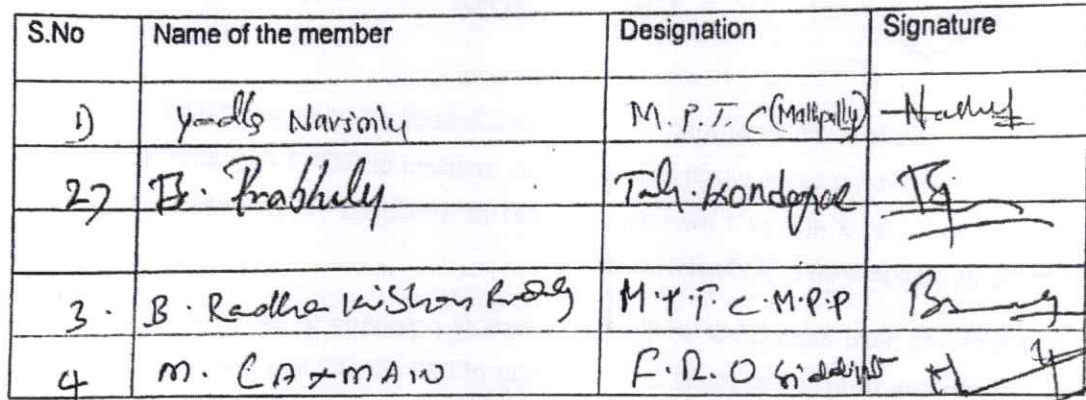 S.No Name of the member Designation Signature
1) Narsimly M.P.T.C (Mallipally)
2) Prabhuly Tah. Kondapak
3. B. Radha Kishan Reddy M.P.T.C. M.P.P
4 M. LAXMAN F.R.O Siddipet